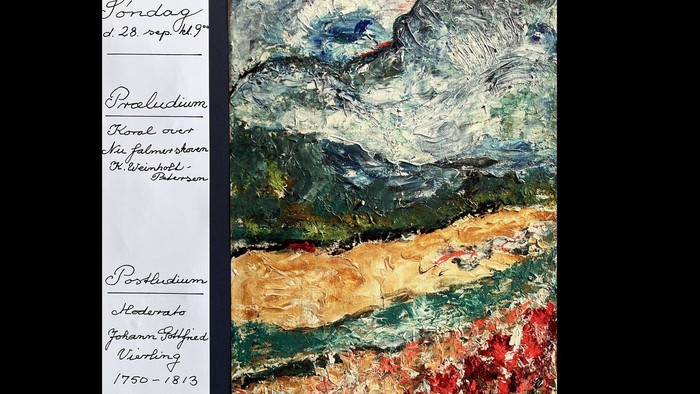 Søndag
d. 28. sep. kl. 9⁰⁰
Præludium
Koral over
Nu falmer skoven
K. Weinholt-
Petersen
Postludium
Moderato
Johann Gottfried
Vierling
1750-1813